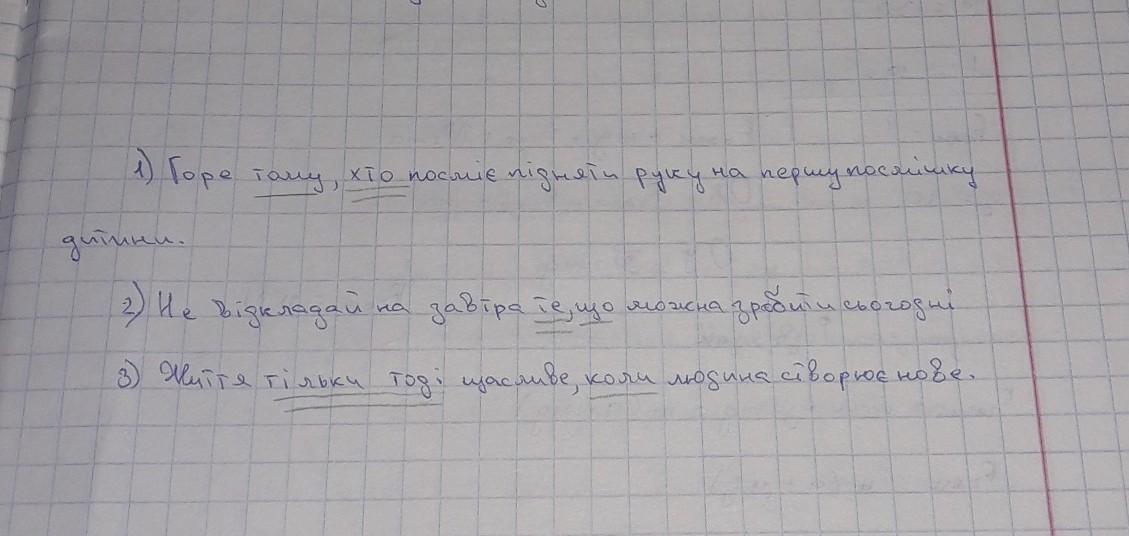 1) Горе тому, хто посміє підняти руку на першу посмішку
дитини.
2) Не відкладай на завтра те, що можна зробити сьогодні
3) Життя тільки тоді щасливе, коли людина створює нове.